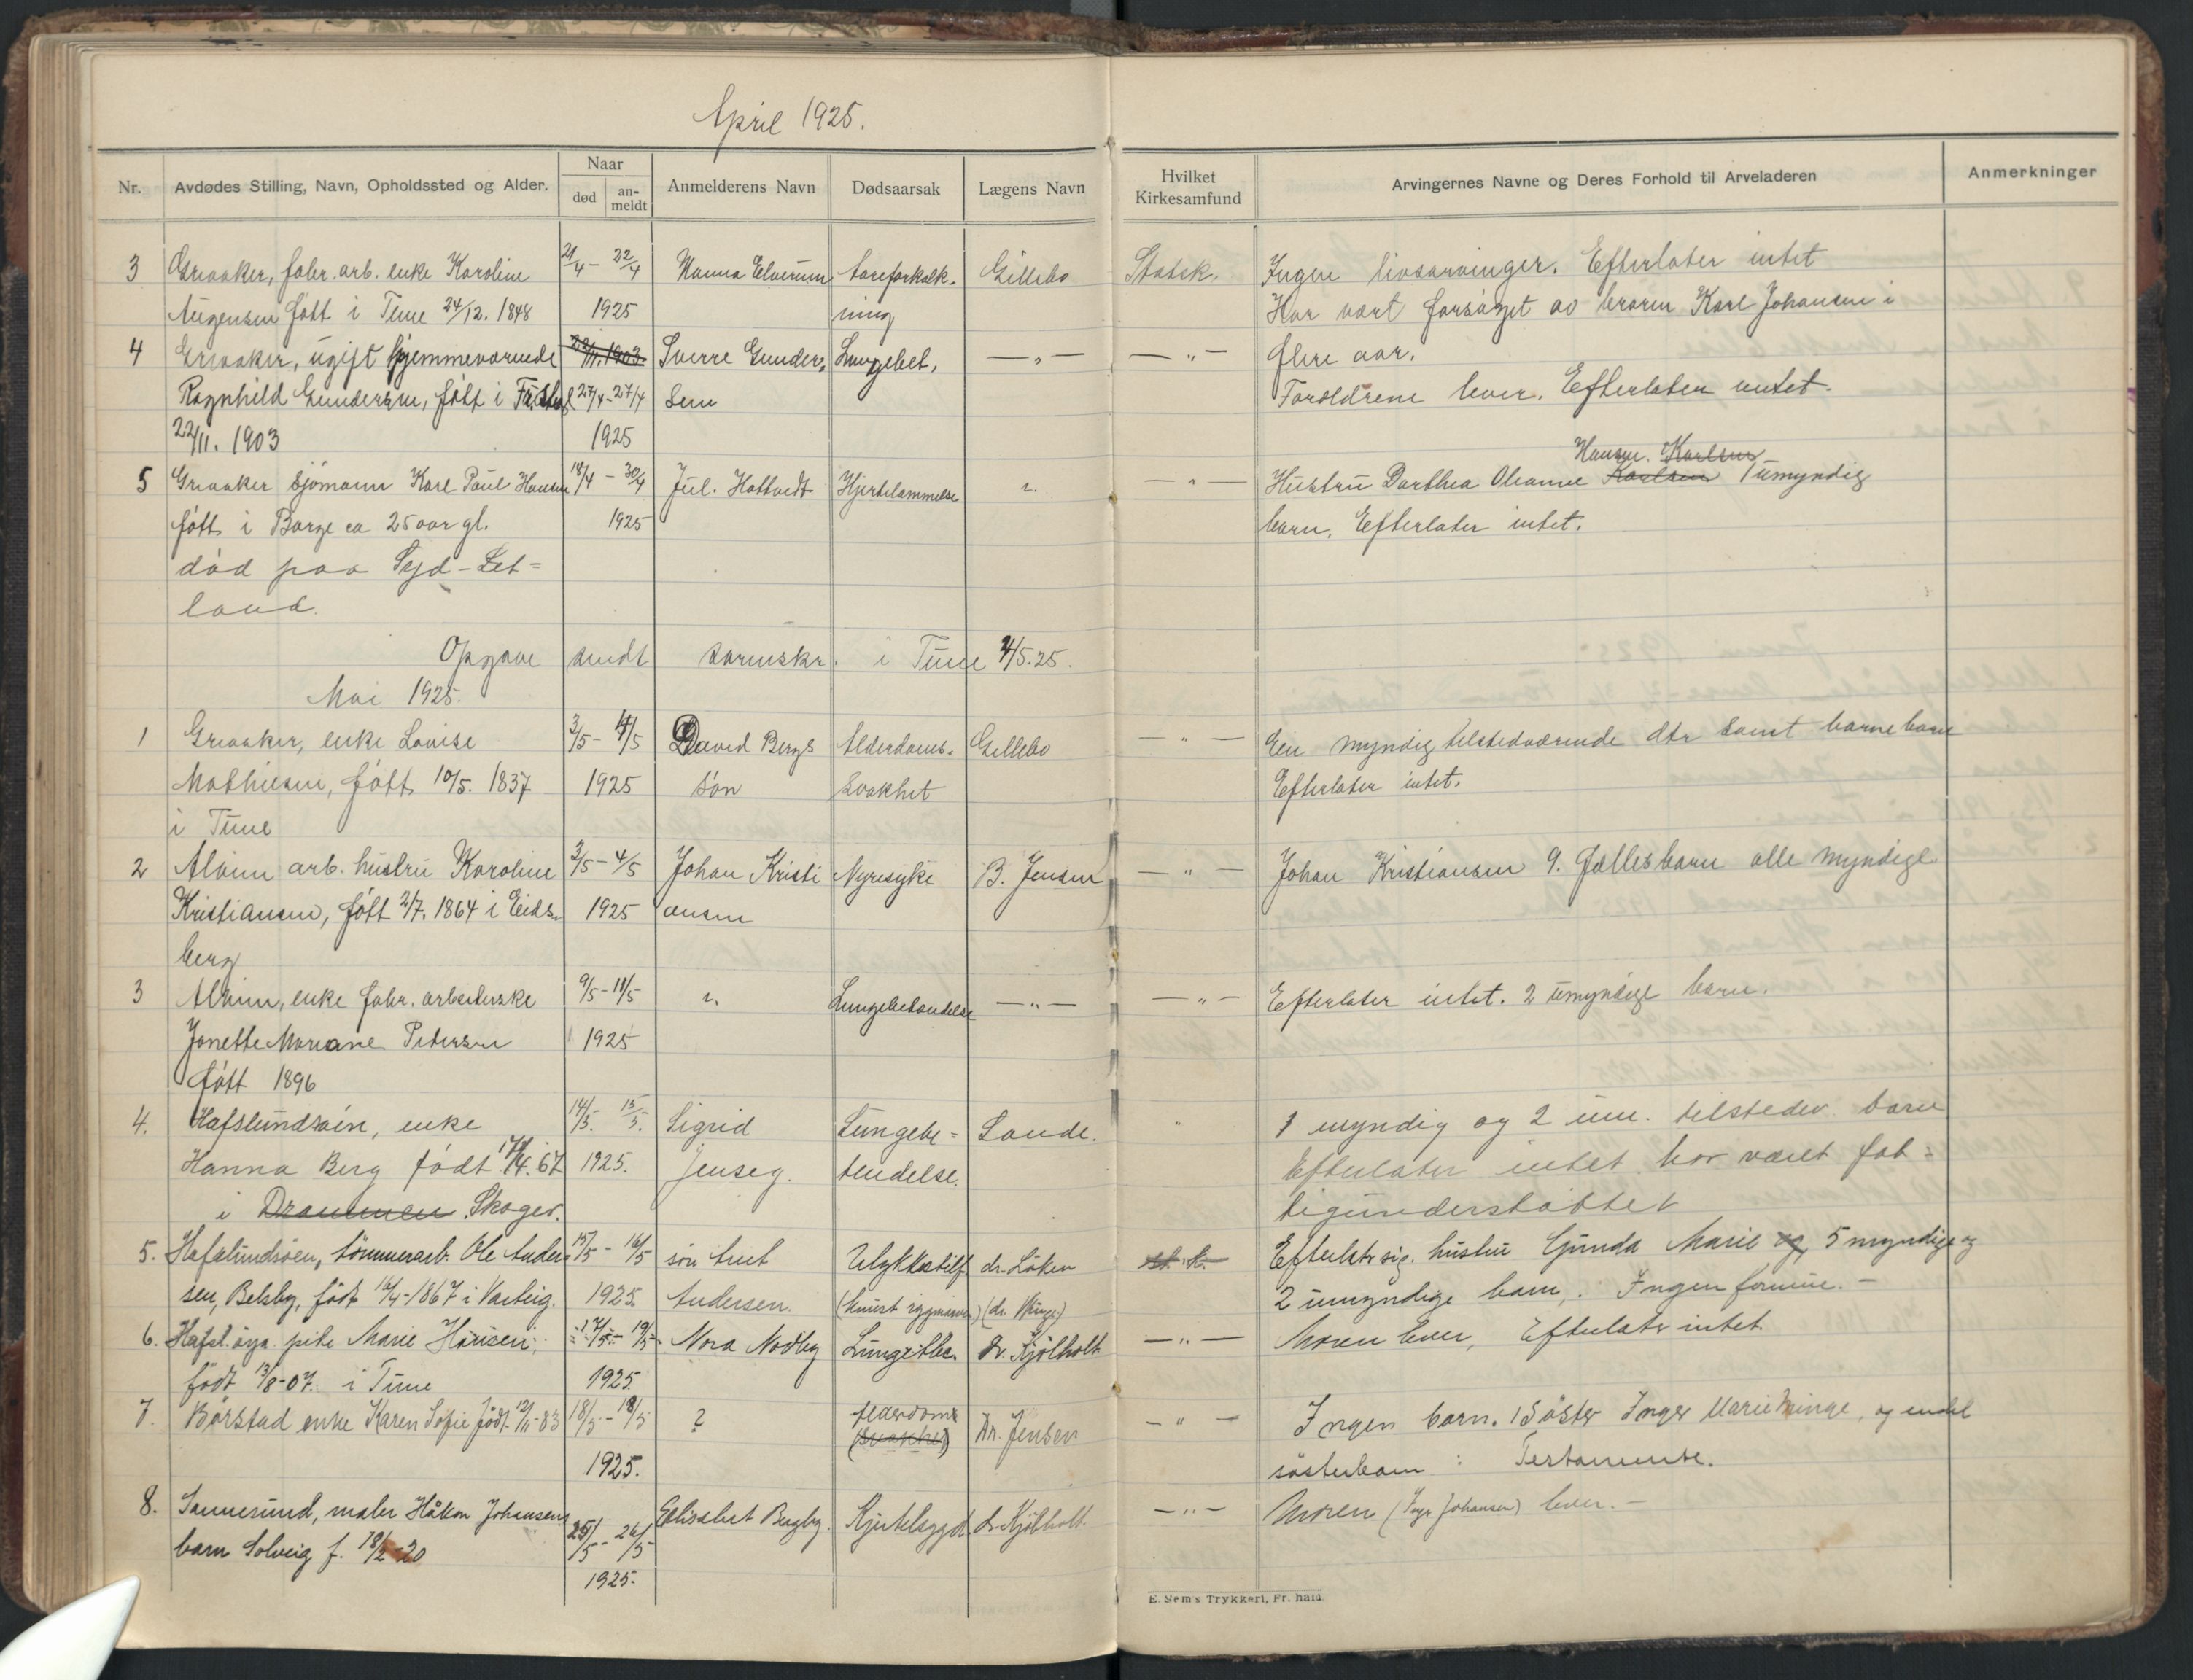 April 1925.
Nr.
Avdødes Stilling, Navn, Opholdssted og Alder.
Naar
død
an-
meldt
Anmelderens Navn
Dødsaarsak
Lægens Navn
Hvilket
Kirkesamfund
Arvingernes Navne og Deres Forhold til Arveladeren
Anmerkninger
3 Greaaker, fabr. arb. enke Karoline 21/4 - 22/4 Hanna Elverum Aareforkalk- Gillebo Statsk. Ingen livsarvinger. Efterlater intet
Augensen født i Tune 24/12. 1848 1925 ning Har vært forsørget av broren Karl Johansen i
4 Greaaker, ugift hjemmeværende 22/11.1903 Sverre Gunder- Lungebet. —„— —„— flere aar.
Ragnhild Gundersen, født i 27/4-27/4 sen Forældrene lever. Efterlater intet.
22/11. 1903 1925
Hansen. Karlsen
5 Greaaker Sjømann Karl Paul Hansen 18/4 - 30/4 Jul. Hattvedt Hjertelammelse „ —„— Hustru Dorthea Oleanne Karlsen 1 umyndig
født i Borge ca 25 aar gl. 1925 barn. Efterlater intet.
død paa Syd-Set-
land.
Opgave sendt sorenskr. i Tune 4/5.25.
Mai 1925.
1 Greaaker, enke Lovise 3/5 - 4/5 David Bergs Alderdoms- Gillebo —„— En myndig tilstedværende dtr samt barnebarn
Mathiesen, født 10/5. 1837 1925 søn svakhet Efterlater intet.
i Tune
2 Alvim arb. hustru Karoline 3/5 - 4/5 Johan Kristi Nyresyke B. Jensen —„— Johan Kristiansen 9. fællesbarn alle myndige
Kristiansen, født 2/7. 1864 i Eids- 1925 ansen
berg
3 Alvim, enke fabr. arbeiderske 9/5-11/5 „ Lungebetændelse —„— —„— Efterlater intet. 2 umyndige barn.
Jonette Mariane Petersen 1925
født 1896
4. Hafslundsøen, enke 14/5. 15/5. Sigrid Lungebe- Sande. „ 1 myndig og 2 um. tilstedev. barn
Hanna Berg født 17/4.67 1925. Jenseg. tendelse. Efterlater intet har været fat-
i Drammen Skoger. tigunderstøttet
5. Hafslundsøen, tømmerarb. Ole Ander- 15/5 - 16/5 søn Anet Ulykkestilf. dr. Løken st. k. Efterlater sig. hustru Gunda Marie og 5 myndige og
sen, Belsby, født 16/4-1867 i Varteig. 1925. Andersen. (knust rygmarv) (dr. Winge) 2 umyndige barn. Ingen formue. -
6. Hafsl. øya. pike Marie 17/5 - 19/5 Nora Nodby Lungetbc. dr. Kjølholt —„— Moren lever, Efterlater intet.
født 13/8-07. i Tune 1925.
7. Børstad enke Karen Sofie født 12/11-83 18/5 - 18/5 ? Alderdoms Dr. Jensen —„— Ingen barn. 1 Søster Inger Marie Minge, og endel
(svakhet) 1925. søsterbarn : Testamente.
8. Sannesund, maler Håkon Johansens 25/5 - 26/5 Elisabet Bugby. Kjertelsygd. dr. Kjølholt —„— Moren (Inga Johansen) lever. -
barn Solveig f. 18/2-20
1925.
E. Sem's Trykkeri, Fr.hald.